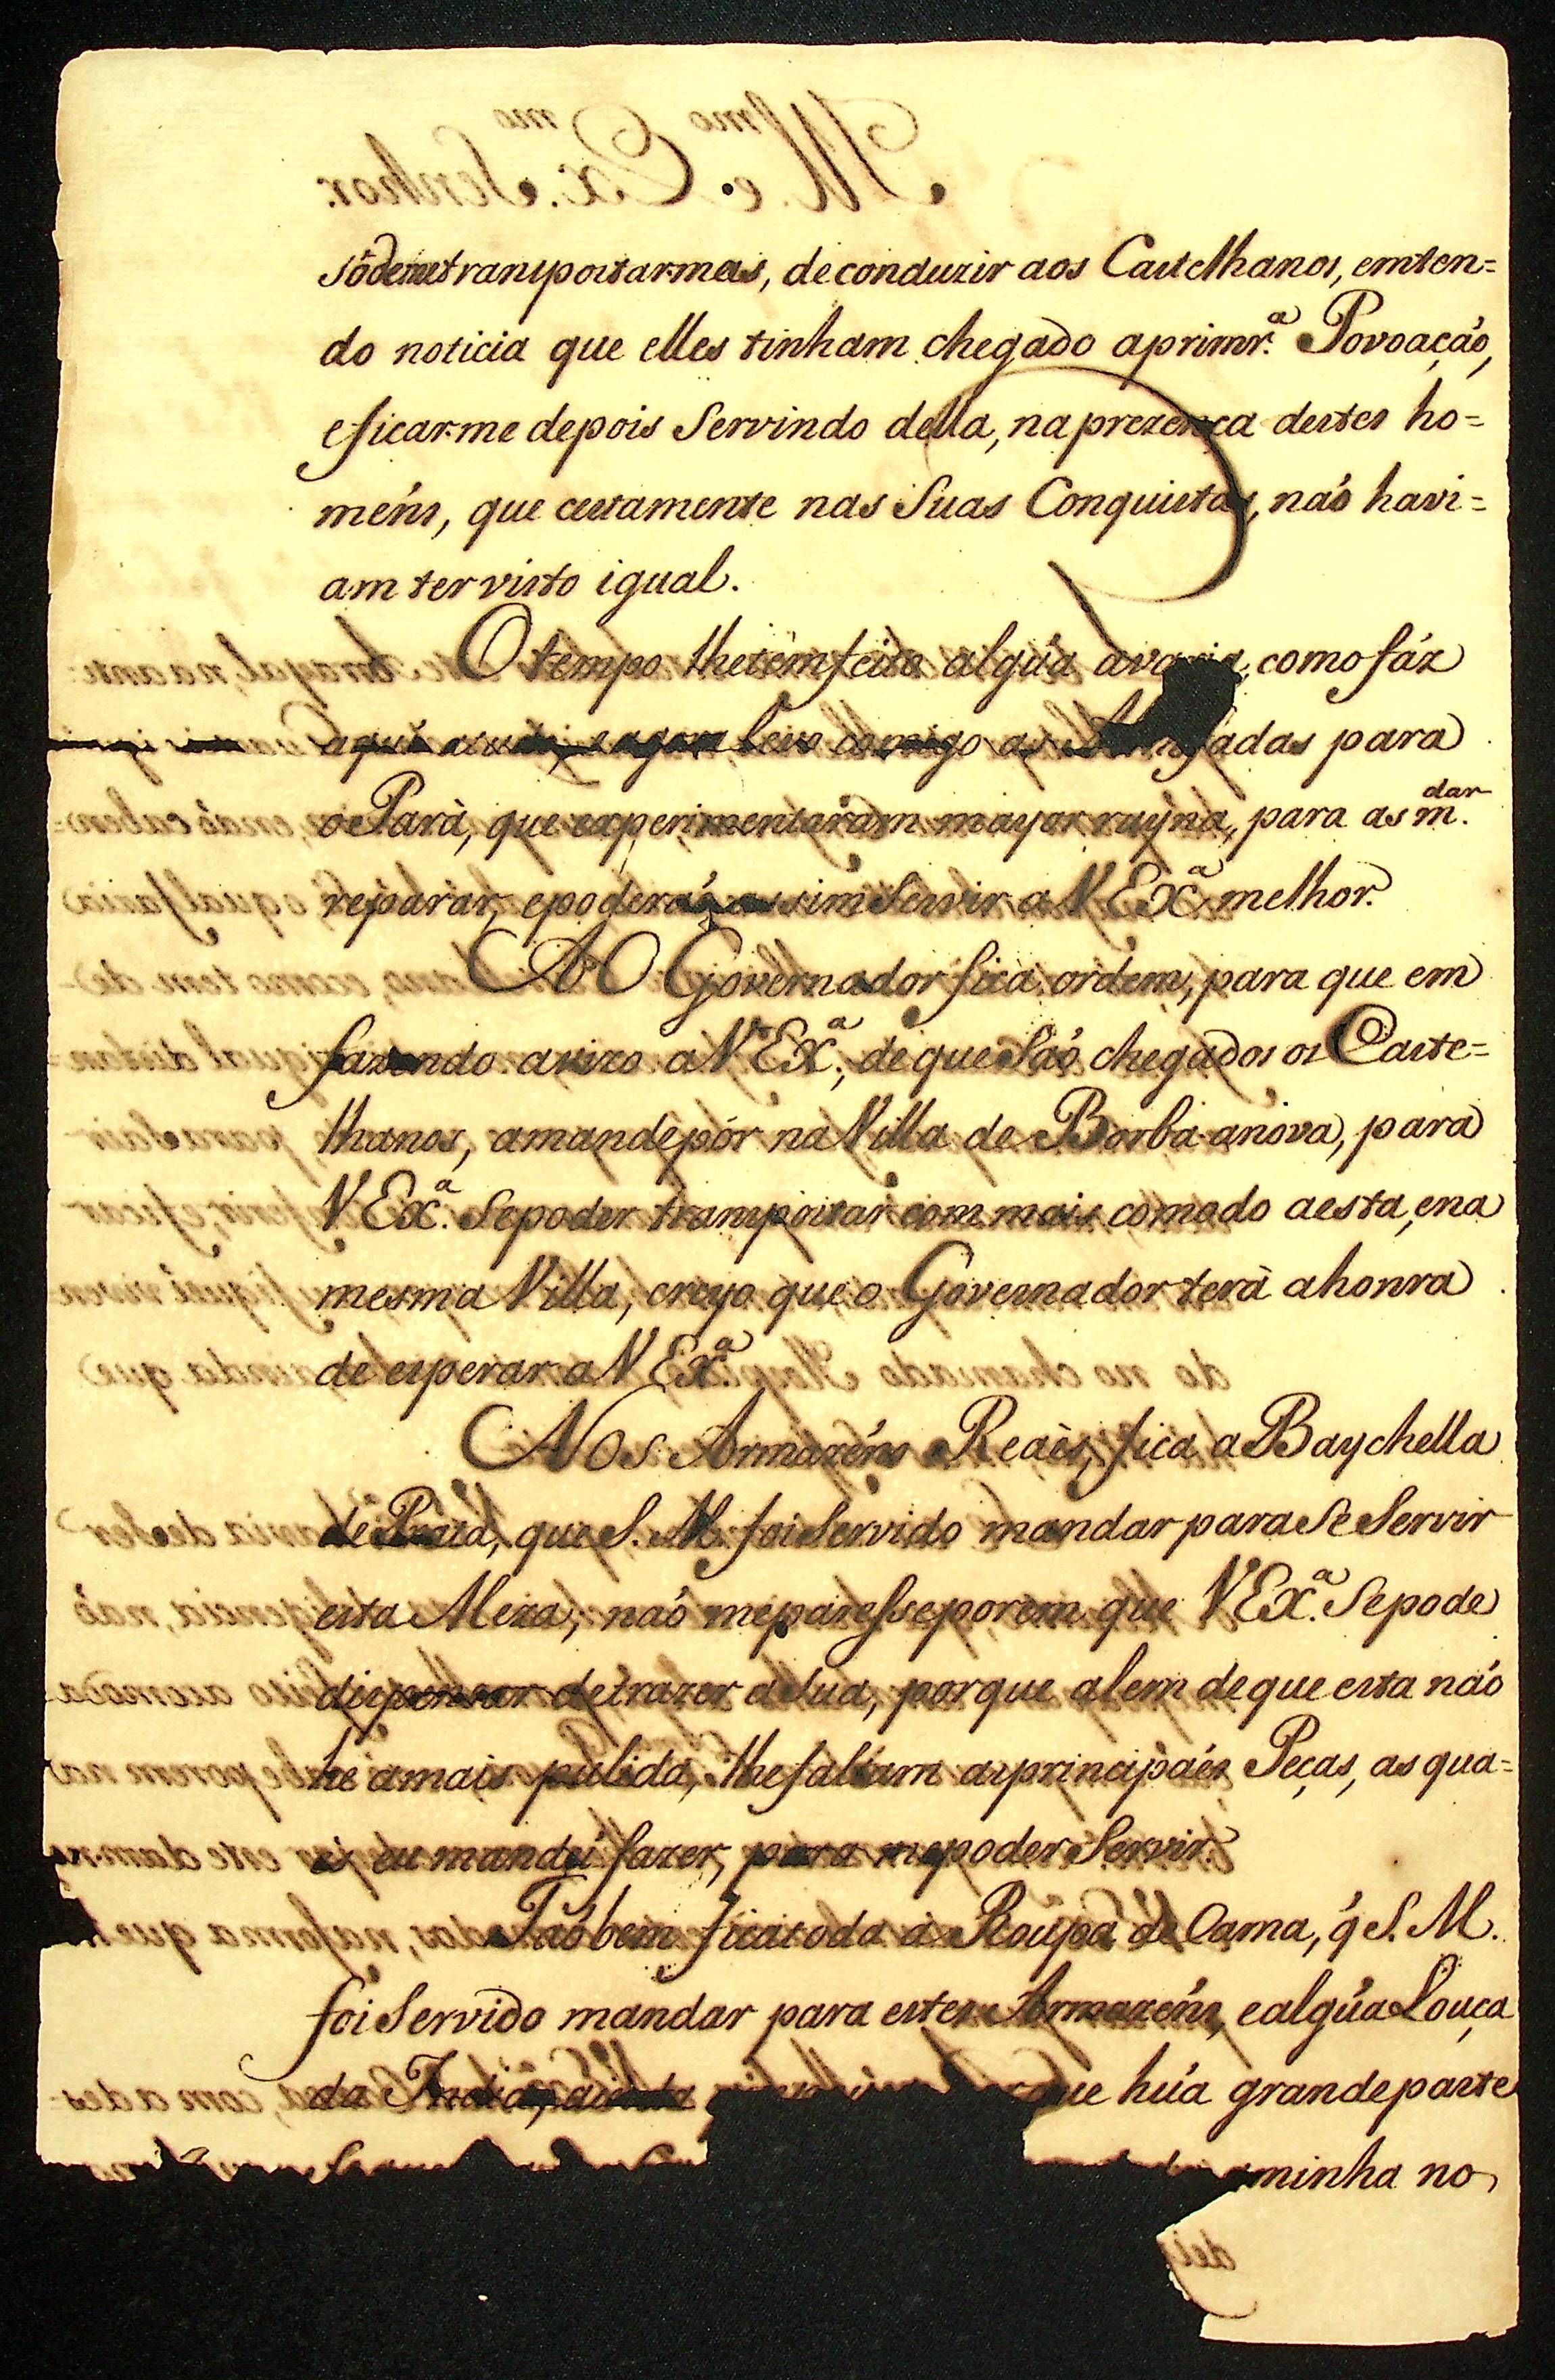 só de me transportar mas, de conduzir aos Castelhanos, em ten=
do noticia que elles tinham chegado aprimr.ª Povoação,
eficarme depois Servindo della, naprezença destes ho=
méns, que certamente nas Suas Conquistas, naõ havi=
am ter visto igual.
O tempo lhe tem feito algúa avaria, como fáz
aqui a tudo, e agora levo comigo as Almofadas para
o Parà, que experimentáram mayor ruyna, para as m.dar
reparar, epoderáõ assim Servir a V Ex.ª melhor.
AO Governador fica ordem, para que em
fazendo avizo a V Ex.ª, de que Saõ chegados os Caste=
lhanos, amande pór na Villa de Borba anova, para
V Ex.ª Sepoder transportar com mais comodo aesta, ena
mesma Villa, creyo que o Governador terà ahonra
de esperar a V Ex.ª
Nos Armazéns Reaès, fica a Baychella
de Prata, que S. M. foi Servido mandar para Se Servir
esta Meza; naõ mepáresse porem que V Ex.ª Sepode
dispensar detrazer aSua, porque alem deque esta naõ
he amais pulida, lhefaltam asprincipáes Peças, as qua=
es eu mandei fazer, para mepoder Servir.
Taõ bem fica toda a Roupa de Cama, q̃ S. M.
foi Servido mandar para estes Armazéns, ealgúa Louça
da India, ainda que húa grande parte
minha no